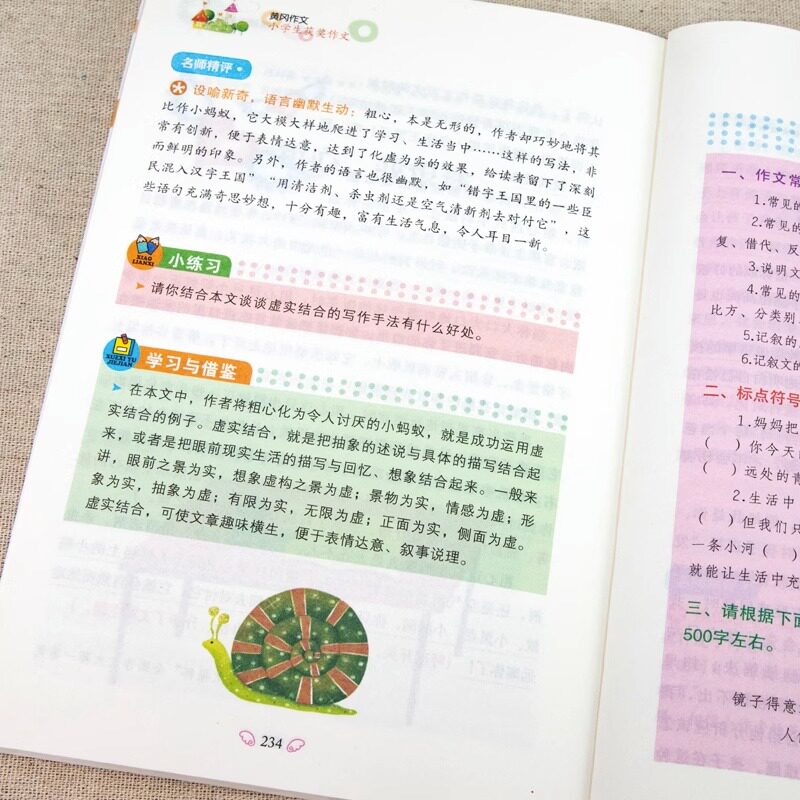 黄冈作文
小学生获奖作文
名师精评
设喻新奇，语言幽默生动：粗心，本是无形的，作者却巧妙地将其
比作小蚂蚁，它大模大样地爬进了学习、生活当中……这样的写法，非
常有创新，便于表情达意，达到了化虚为实的效果，给读者留下了深刻
而鲜明的印象。另外，作者的语言也很幽默，如“错字王国里的一些臣
民混入汉字王国”“用清洁剂、杀虫剂还是空气清新剂去对付它”，这
些语句充满奇思妙想，十分有趣，富有生活气息，令人耳目一新。
XIAO
LIANXI
小练习
请你结合本文谈谈虚实结合的写作手法有什么好处。
XUEXI YU
JIEJIAN
学习与借鉴
在本文中，作者将粗心化为令人讨厌的小蚂蚁，就是成功运用虚
实结合的例子。虚实结合，就是把抽象的述说与具体的描写结合起
来，或者是把眼前现实生活的描写与回忆、想象结合起来。一般来
讲，眼前之景为实，想象虚构之景为虚；景物为实，情感为虚；形
象为实，抽象为虚；有限为实，无限为虚；正面为实，侧面为虚。
虚实结合，可使文章趣味横生，便于表情达意、叙事说理。
234
一、作文常
1.常见的
2.常见的
复、借代、反
3.说明文
4.常见的
比方、分类别
5.记叙的
6.记叙文的
二、标点符号
1.妈妈把
（ ）你今天
（ ）远处的青
2.生活中
（ ）但我们只
一条小河（ ）
就能让生活中充
三、请根据下面
500字左右。
镜子得意